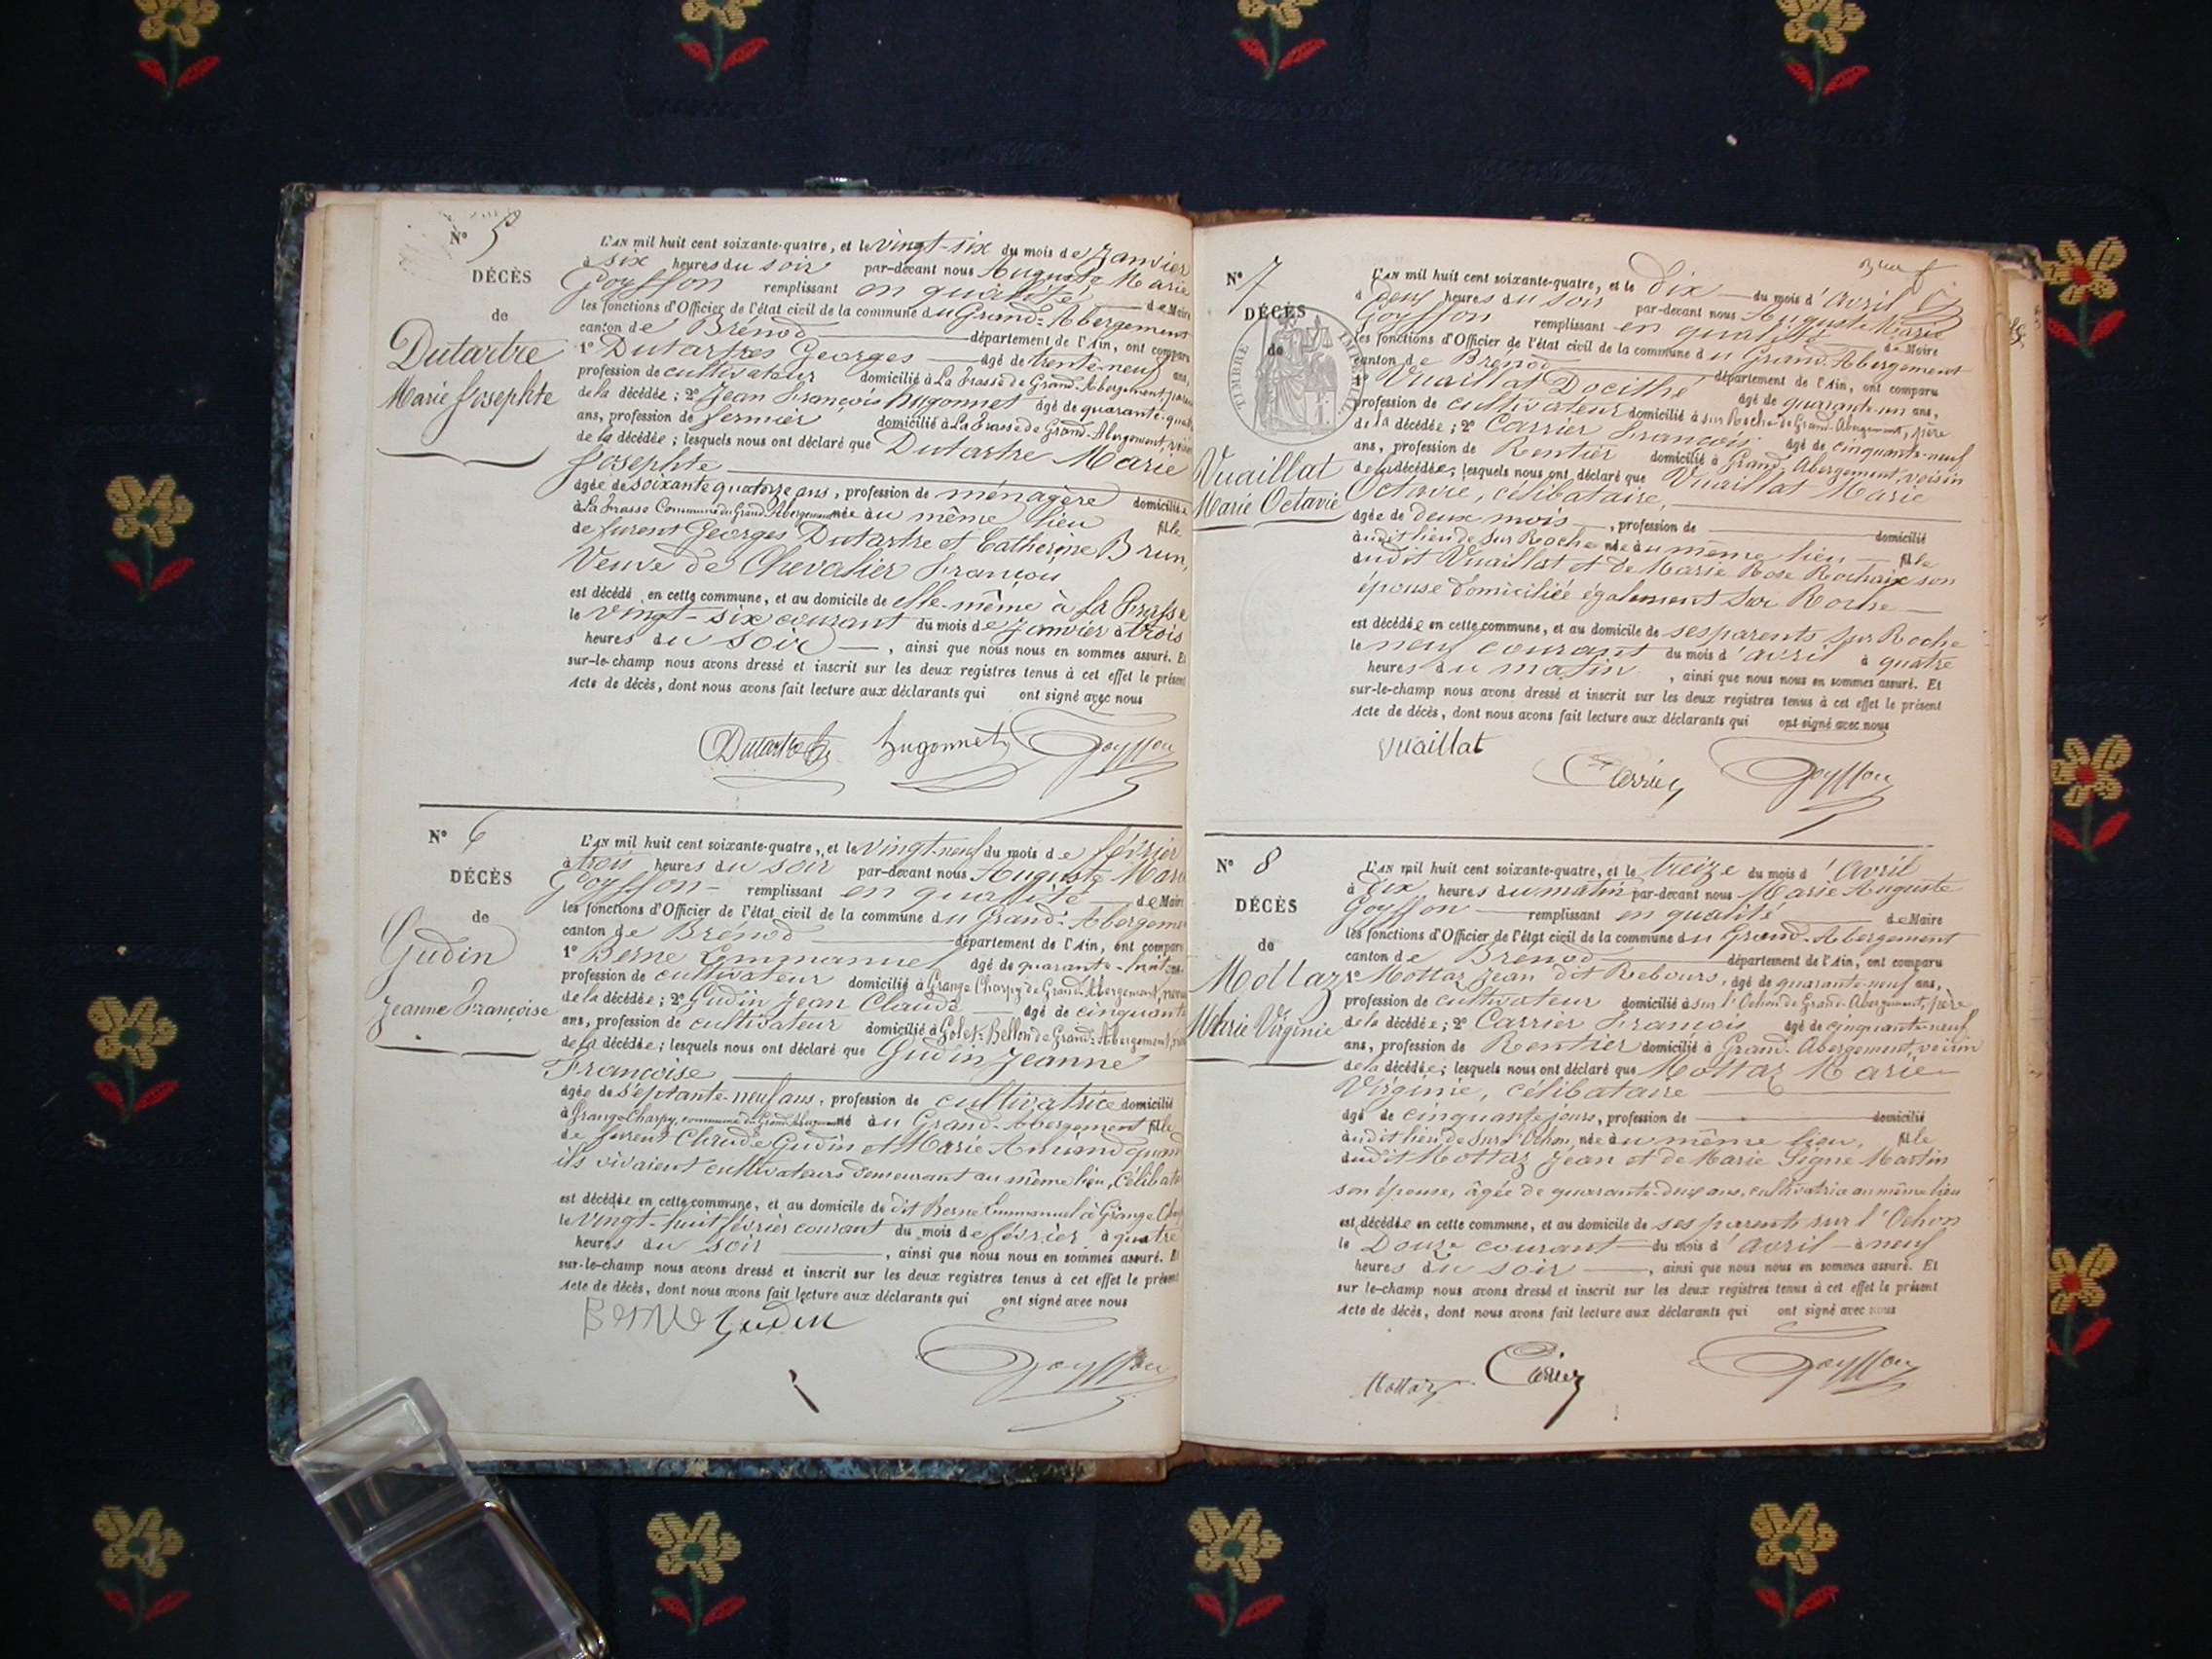 N° 5
DÉCÈS
de
Dutartre
Marie Josephte
L'AN mil huit cent soixante-quatre, et le vingt-six du mois de Janvier
à six heures du soir par-devant nous Auguste Marie
Goyffon remplissant en qualité de Maire
les fonctions d'Officier de l'état civil de la commune du Grand-Abergement
canton de Brénod département de l'Ain, ont comparu
1° Dutartre Georges âgé de trente neuf ans,
profession de cultivateur domicilié à La Frasse de Grand-Abergement,
de la décédée; 2° Jean François hugonnet âgé de quarante-quatre
ans, profession de fermier domicilié à La Frasse de Grand-Abergement, voisin
de la décédée; lesquels nous ont déclaré que Dutartre Marie
Josephte
âgée de soixante quatorze ans, profession de ménagère domiciliée
à La Frasse Commune du Grand-Abergement née au même lieu fille
de furent Georges Dutartre et Catherine Brun,
Veuve de Chevalier François
est décédé en cette commune, et au domicile de elle-même à la Frasse
le vingt-six courant du mois de Janvier à trois
heures du soir, ainsi que nous nous en sommes assuré. Et
sur-le-champ nous avons dressé et inscrit sur les deux registres tenus à cet effet le présent
Acte de décès, dont nous avons fait lecture aux déclarants qui ont signé avec nous
Dutartre hugonnet Goyffon
N° 6
DÉCÈS
de
Gudin
Jeanne Françoise
L'AN mil huit cent soixante-quatre, et le vingt-neuf du mois de février
à trois heures du soir par-devant nous Auguste Marie
Goyffon remplissant en qualité de Maire
les fonctions d'Officier de l'état civil de la commune du Grand-Abergement
canton de Brénod département de l'Ain, ont comparu
1° Berne Emmanuel âgé de quarante-huit ans
profession de cultivateur domicilié à Grange Charpy de Grand-Abergement, neveu
de la décédée; 2° Gudin Jean Claude âgé de cinquante
ans, profession de cultivateur domicilié à Golet-Bellon de Grand-Abergement,
de la décédée; lesquels nous ont déclaré que Gudin Jeanne
Françoise
âgée de septante-neuf ans, profession de cultivatrice domicilié
à Grange Charpy, commune du Grand-Abergement né au Grand-Abergement fille
de furent Claude Gudin et Marie quand
ils vivaient cultivateurs demeurant au même lieu, Célibataire
est décédée en cette commune, et au domicile de dit Berne Emmanuel à Grange Charpy
le vingt-huit février courant du mois de février à quatre
heures du soir, ainsi que nous nous en sommes assuré. Et
sur-le-champ nous avons dressé et inscrit sur les deux registres tenus à cet effet le présent
Acte de décès, dont nous avons fait lecture aux déclarants qui ont signé avec nous
Berne Gudin
Goyffon
N° 7
DÉCÈS
de
TIMBRE IMPÉRIAL
Vuaillat
Marie Octavie
L'AN mil huit cent soixante-quatre, et le Dix du mois d'avril
à Deux heures du soir par-devant nous Auguste Marie
Goyffon remplissant en qualité de Maire
les fonctions d'Officier de l'état civil de la commune du Grand-Abergement
canton de Brénod département de l'Ain, ont comparu
1° Vuaillat Docithé âgé de quarante-un ans,
profession de cultivateur domicilié à sur Roche de Grand-Abergement, père
de la décédée; 2° Carrier François âgé de cinquante-neuf
ans, profession de Rentier domicilié à Grand-Abergement, voisin
de la décédée; lesquels nous ont déclaré que Vuaillat Marie
Octavie, célibataire,
âgée de deux mois, profession de domicilié
audit lieu de Sur Roche née au même lieu fille
dudit Vuaillat et de Marie Rose Rochaix son
épouse domiciliée également Sur Roche
est décédée en cette commune, et au domicile de ses parents sur Roche
le neuf courant du mois d'avril à quatre
heures du matin, ainsi que nous nous en sommes assuré. Et
sur-le-champ nous avons dressé et inscrit sur les deux registres tenus à cet effet le présent
Acte de décès, dont nous avons fait lecture aux déclarants qui ont signé avec nous
Vuaillat
Carrier Goyffon
N° 8
DÉCÈS
de
Mottaz
Marie Virginie
L'AN mil huit cent soixante-quatre, et le treize du mois d'avril
à dix heures du matin par-devant nous Marie Auguste
Goyffon remplissant en qualité de Maire
les fonctions d'Officier de l'état civil de la commune du Grand-Abergement
canton de Brénod département de l'Ain, ont comparu
1° Mottaz Jean dit Rebours, âgé de quarante-neuf ans,
profession de cultivateur domicilié à sur l'Ochon de Grand-Abergement, père
de la décédée; 2° Carrier François âgé de cinquante-neuf
ans, profession de Rentier domicilié à Grand-Abergement, voisin
de la décédée; lesquels nous ont déclaré que Mottaz Marie
Virginie, célibataire
âgé de cinquante jours, profession de domicilié
audit lieu de Sur l'Ochon, née au même lieu, fille
dudit Mottaz Jean et de Marie Signe Martin
son épouse, âgée de quarante-deux ans, cultivatrice au même lieu
est décédée en cette commune, et au domicile de ses parents sur l'Ochon
le Douze courant du mois d'avril à neuf
heures du soir, ainsi que nous nous en sommes assuré. Et
sur-le-champ nous avons dressé et inscrit sur les deux registres tenus à cet effet le présent
Acte de décès, dont nous avons fait lecture aux déclarants qui ont signé avec nous
Mottaz Carrier Goyffon